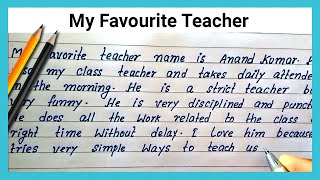 My Favourite Teacher
My favorite teacher name is Anand Kumar.
my class teacher and takes daily attend
the morning. He is a strict teacher b
very funny. He is very disciplined and punct
He does all the work related to the class
right time without delay. I love him because
tries very simple ways to teach us